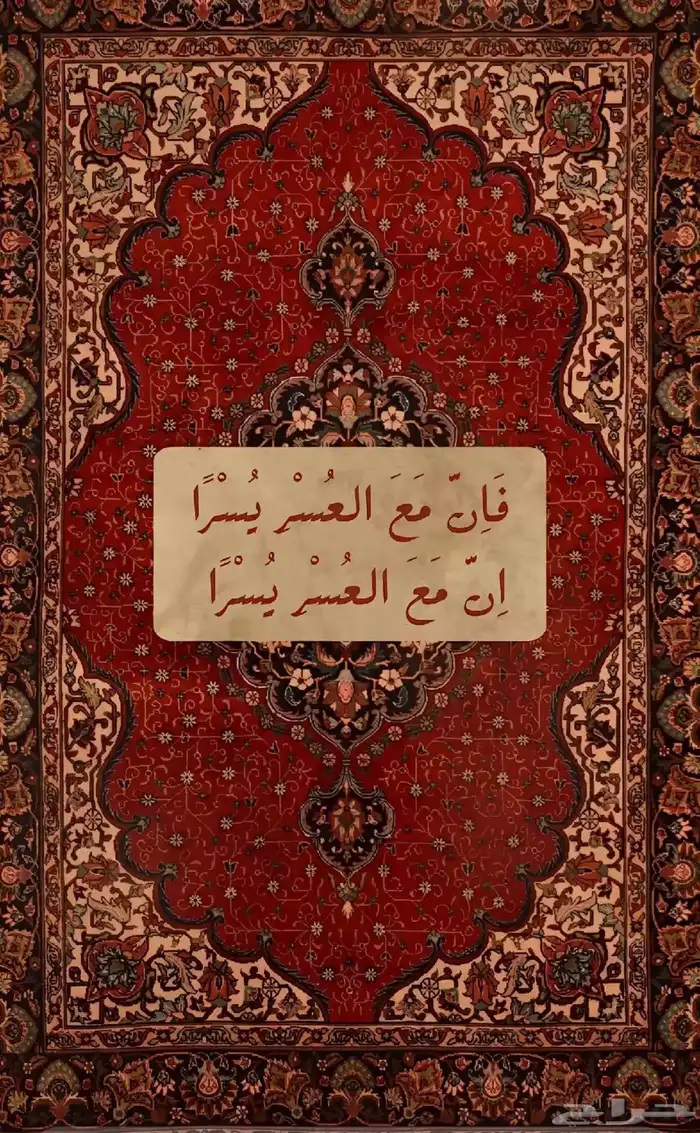 فَاِنّ مَعَ العُسْرِ يُسْرًا
اِنّ مَعَ العُسْرِ يُسْرًا
حراج